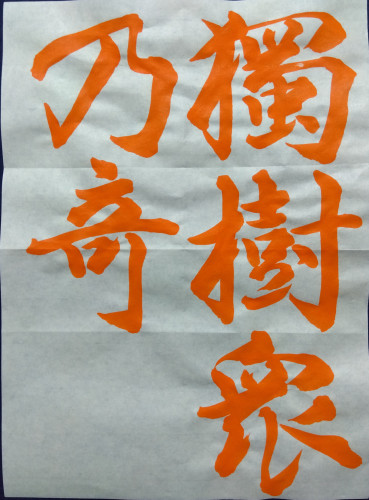 獨樹眾
乃奇